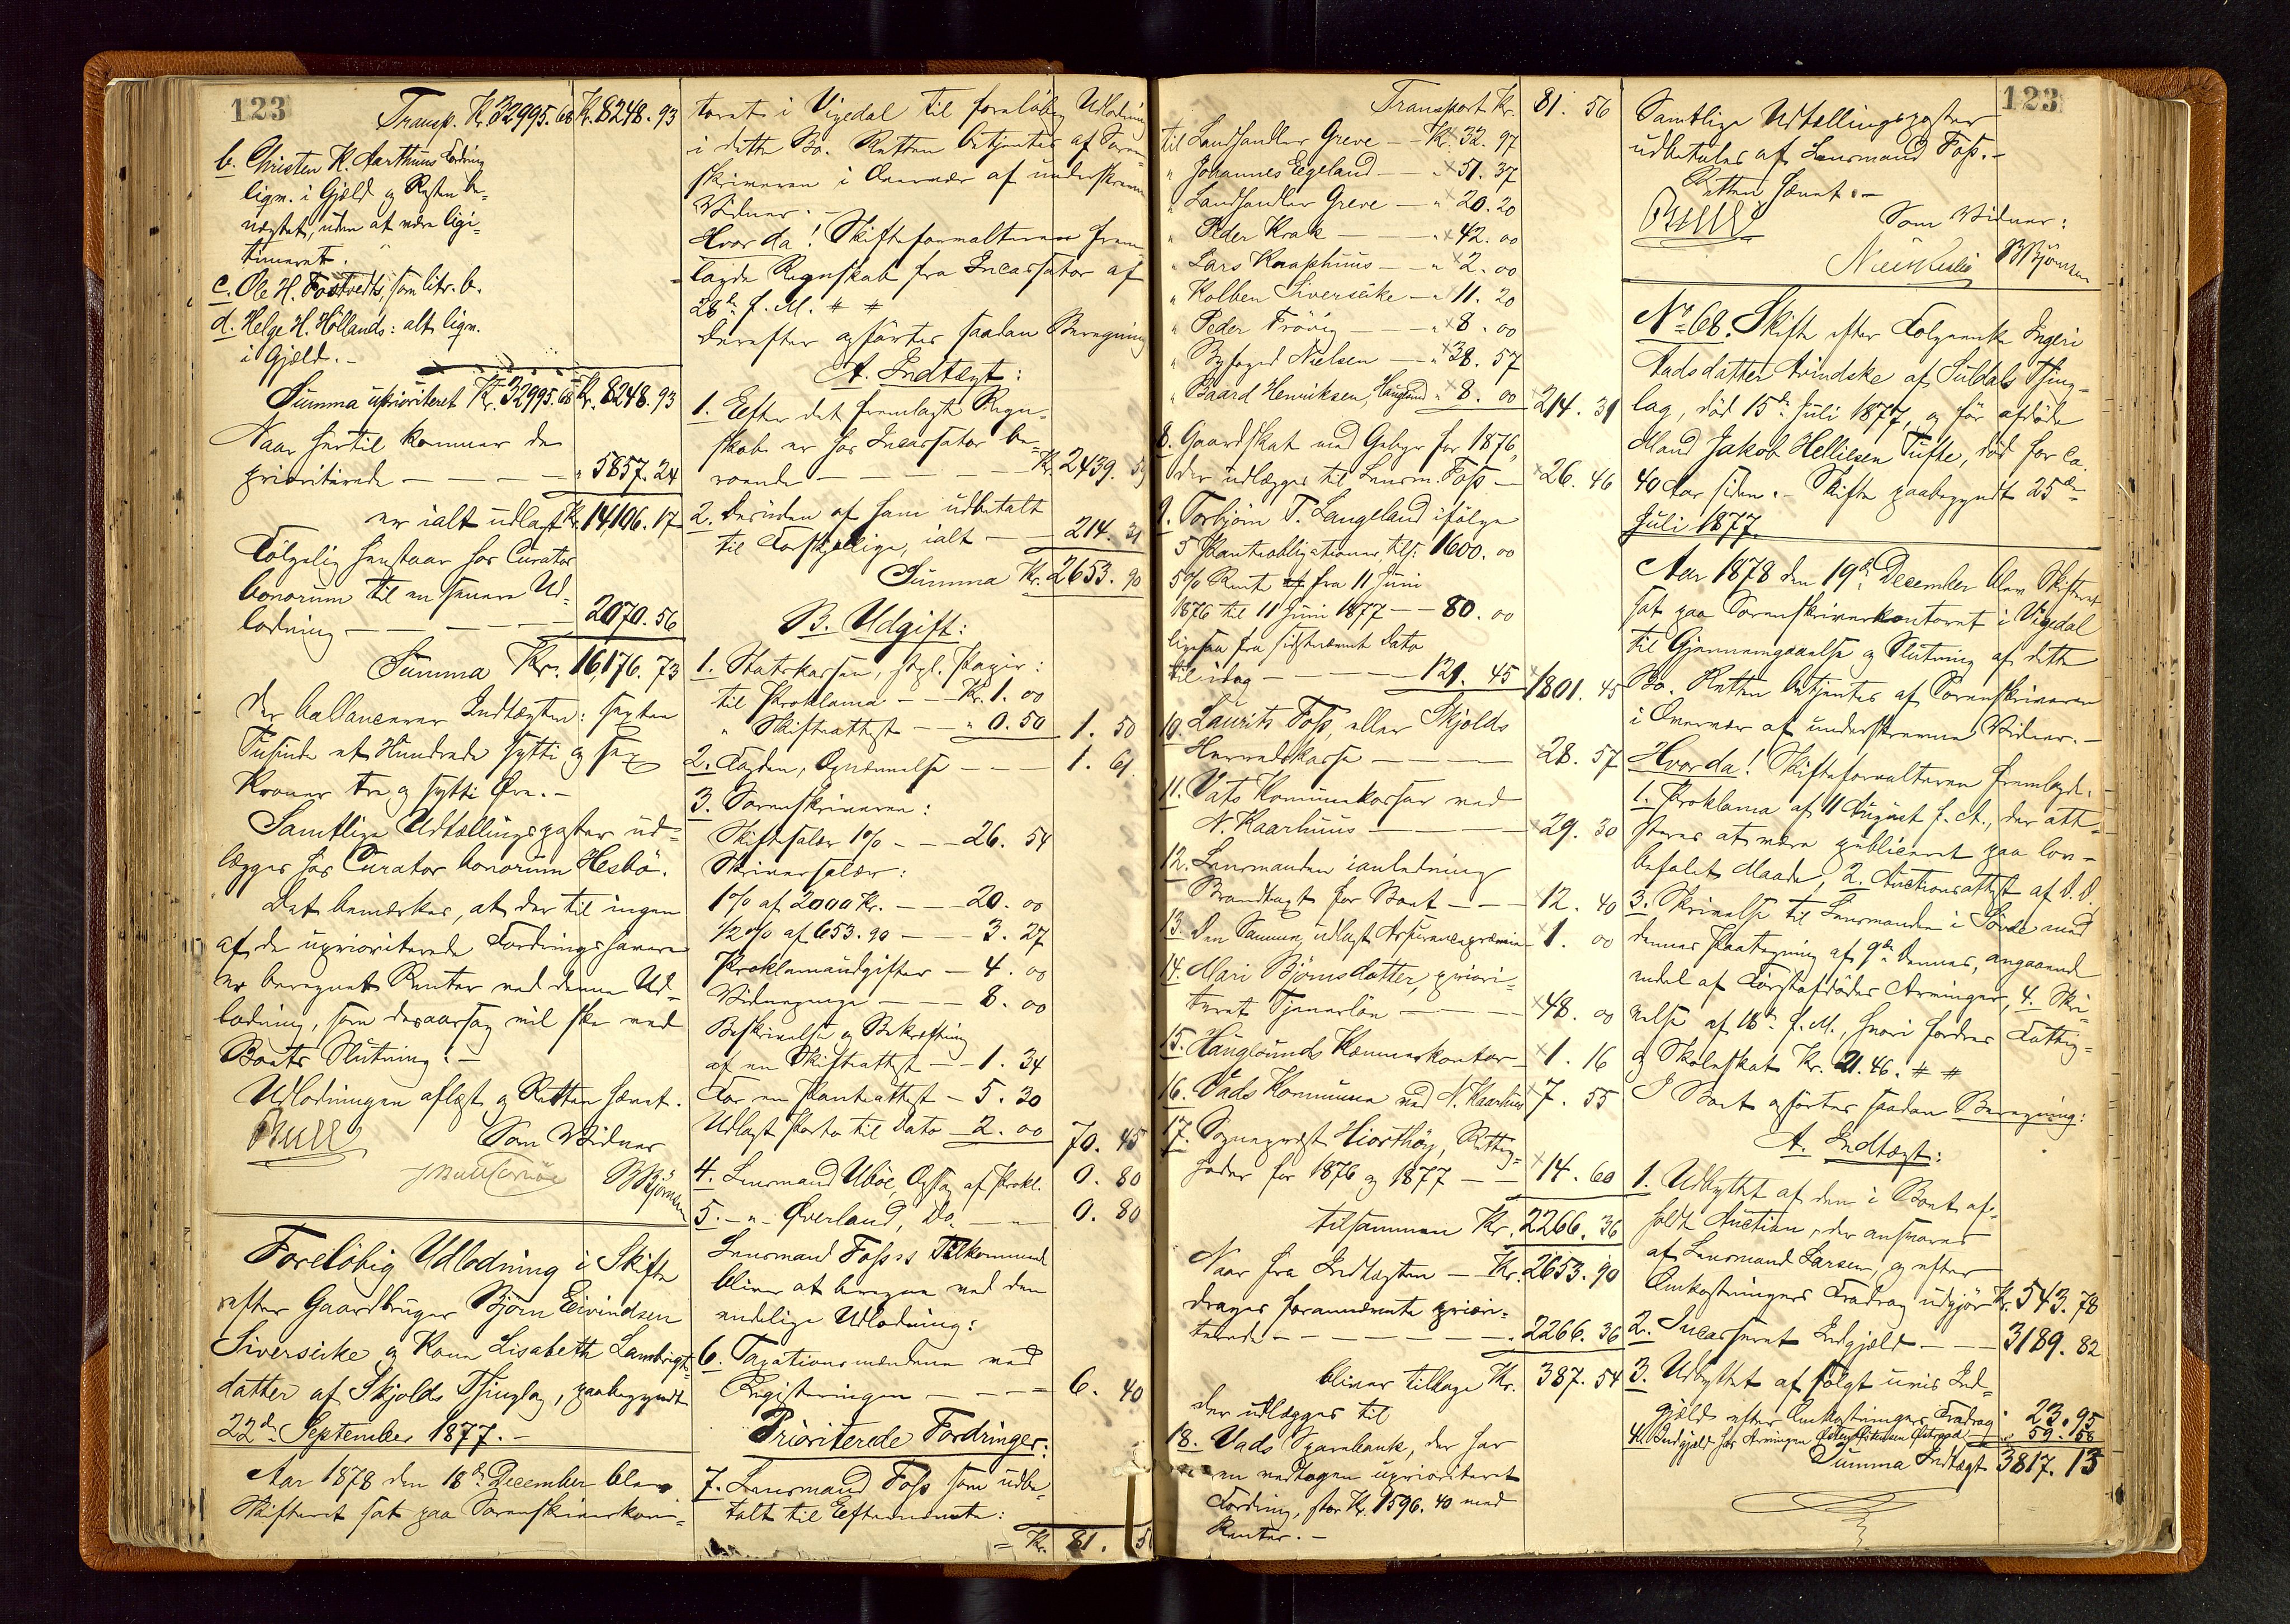 123
Transp. Kr. 32995.68 Kr. 8248.93
b. Christen K. Aarthuus Fodring
lign. i Gjæld og Resten be-
nægtet, uden at være ligi-
timeret.
c. Ole H. Fostvedts, som litr. b.
d. Helge H. Höllands: alt lign.
i Gjæld.-
Summa uprioriteret Kr. 32995.68 Kr. 8248.93
Naar hertil kommer de
prioriterede - - - - " 5857.24
er ialt udlagt Kr. 14,106.17
Fölgelig henstaar hos Curator
bonorum til en senere Ud-
lodning - - - - - 2070.56
Summa Kr. 16,176.73
der ballancerer Indtægten: sexten
Tusinde et Hundrede sytti og sex
Kroner tre og sytti Øre.-
Samtlige Udtællingsposter ud-
lægges hos Curator bonorum Hesbö.
Det bemærkes, at der til ingen
af de uprioriterede Fordringshavere
er beregnet Renter ved denne Ud-
lodning, som desaarsag vil ske ved
Boets Slutning.-
Udlodningen oplæst og Retten hævet.
Bull
Som Vidner
BBjörnsen
Foreløbig Udlodning i Skifte
efter Gaardbruger Björn Eivindsen
Siverseike og Kone Lisabeth Lambrigts-
datter af Skjolds Thinglag, paabegyndt
22de September 1877.-
Aar 1878 den 18de December blev
Skifteret sat paa Sorenskriverkon-
toret i Vigedal til foreløbig Udlodning
i dette Bo. Retten betjentes af Soren-
skriveren i Overvær af underskrevne
Vidner.-
Hvorda! Skifteforvalteren frem-
lagde Regnskab fra Incassator af
28de f. M. # #
derefter opførtes saadan Beregning
A. Indtægt:
1. Efter det fremlagte Regn-
skab er hos Incassator be-
roende - - - - Kr. 2439.59
2. Desuden af ham udbetalt
til Forskjellige, ialt - - 214.31
Summa Kr. 2653.90
B. Udgift:
1. Statskassen, stpl. Papir:
til Proklama - - Kr. 1.00
" Skifteattest - - " 0.50 1.50
2. Fogden, Opnævnelse - - - 1.61
3. Sorenskriveren:
Skiftesalær 1% - - - 26.54
Skriversalær:
1% af 2000 Kr. - - - 20.00
1/2% af 653.90 - - 3.27
Proklamaudgifter - 4.00
Vidnepenge - - - 8.00
Beskrivelse og Bekræftning
af en Skifteattest - - 1.34
For en Panteattest - 5.30
Udlagt Porto til Dato - 2.00 70.45
4. Lensmand Uböe, Opslag af Prokl. 0.80
5. - " - Øverland, Do. - " 0.80
Lensmand Foss's Tilkommende
bliver at beregne ved den
endelige Udlodning:
6. Taxationsmændene ved
Registeringen - - - - 6.40
Prioriterede Fordringer:
7. Lensmand Foss som udbe-
talt til Efternævnte:
= Kr. 81.56
123
Transport Kr. 81.56
til Landhandler Greve - - Kr. 32.97
" Johannes Egeland - - " 51.37
" Landhandler Greve - " 20.20
" Peder Krak - - - " 42.00
" Lars Knaphuus - - " 2.00
" Kolben Siverseike - " 11.20
" Peder Frövig - - - " 8.00
" Byfoged Nielsen - - " 38.57
" Baard Henriksen, Haugsund " 8.00 214.31
8. Gaardskat med Gebyr for 1876,
der udlægges til Lensm. Foss - 26.46
9. Torbjörn T. Langeland ifölge
5 Panteobligationer, tils. 1600.00
5% Rente af fra 11 Juni
1876 til 11 Juni 1877 - - 80.00
ligesaa fra sidstnævnt Dato
til idag - - - - 121.45 1801.45
10. Laurits Foss, eller Skjolds
Herredskasse - - - - 28.57
11. Vats Kommunekasse ved
N. Kaarhuus - - - - 29.30
12. Lensmanden ianledning
Brandtaxt for Boet - - - 12.40
13. Den Samme, udlagt Assurancepræmie 1.00
14. Mari Björnsdatter, priori-
teret Tjenerlön - - - 48.00
15. Haugsunds Kæmnerkontor - 1.16
16. Vads Kommune ved N. Kaarhuus 7.55
17. Sogneprest Hiorthöy, Rettig-
heder for 1876 og 1877 - - 14.60
tilsammen Kr. 2266.36
Naar fra Indtægten - Kr. 2653.90
drages forannævnte priori-
terede - - - - - - - 2266.36
bliver tilbage Kr. 387.54
der udlægges til
18. Vads Sparebank, der har
en vedtagen uprioriteret
Fordring, stor Kr. 1596.40 med
Renter.-
Samtlige Udtællingsposter
udbetales af Lensmand Foss.-
Retten hævet.-
Bull
Som Vidner:
BBjörnsen
No. 68. Skifte efter Folgeenke Ingeri
Aadsdatter Avindske af Suldals Thing-
lag, död 15de Juli 1877, og för afdöde
Mand Jakob Helliesen Tufte, död for ca.
40 Aar siden.- Skifte paabegyndt 25de
Juli 1877.
Aar 1878 den 19de December blev Skifteret
sat paa Sorenskriverkontoret i Vigedal
til Gjennemgaaelse og Slutning af dette
Bo. Retten betjentes af Sorenskriveren
i Overvær af underskrevne Vidner.-
Hvorda! Skifteforvalteren fremlagde:
1. Proklama af 11 August f. A., der att-
steres at være publiceret paa lov-
befalet Maade, 2. Auctionsattest af D. D.
3. Skrivelse til Lensmanden i Sövde med
dennes Paategning af 9de dennes, angaaende
endel af Förstafdödes Arvinger, 4. Skri-
velse af 18de f. M., hvori fordres Fattig-
og Skoleskat Kr. 21.46. # #
I Boet opførtes saadan Beregning:
A. Indtægt:
1. Udbyttet af den i Boet af-
holdte Auction, der ansvares
af Lensmand Larsen, og efter
Omkostningers Fradrag udgjør Kr. 543.78
2. Incasseret Indgjæld - - - 3189.82
3. Udbyttet af solgt uvis Ind-
gjæld efter Omkostningers Fradrag " 23.95
4. Indgjæld hos Arvingen Østen Østensen " 59.58
Summa Indtægt 3817.13